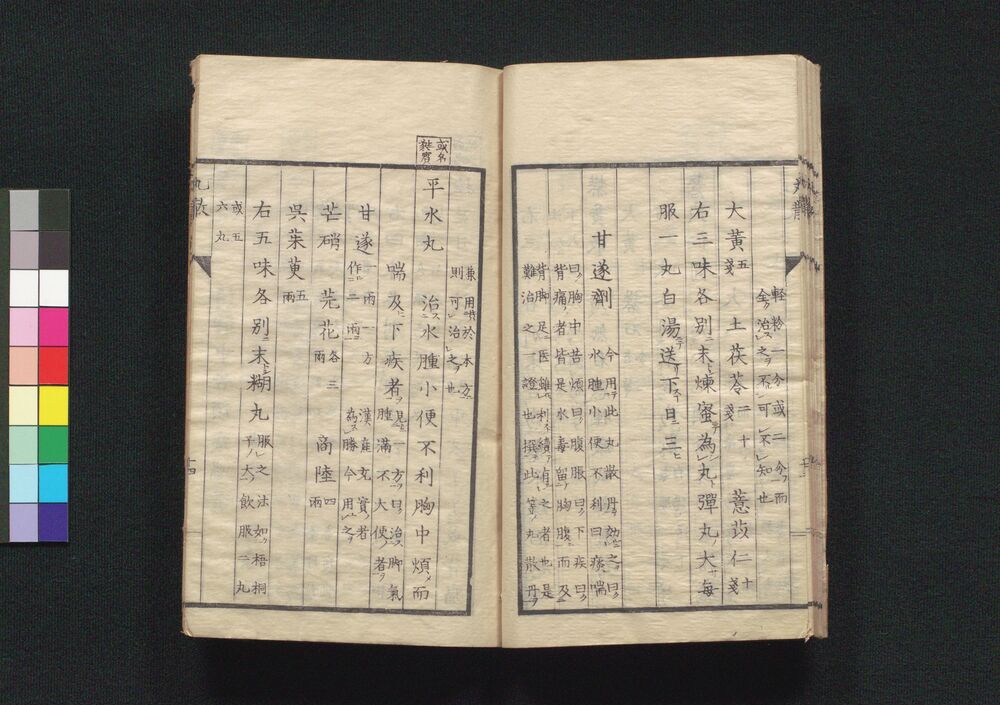 軽粉一分或二分而
全治之不可不知也
大黄五戔 土茯苓二十戔 薏苡仁十戔
右三味各別末煉蜜為丸彈丸大毎
服一丸白湯送下日三
甘遂劑
今用此丸散丹効之曰
水腫小便不利曰痰喘
曰胸中苦煩曰腹脹曰下疾曰
背痛者皆是水毒留胸腹而及
背脚足医雖利續貞之者也是
難治之一證也撰此等丸散丹
兼用於本方
則可治之也
或名
平水丸 治水腫小便不利胸中煩而
喘及下疾者
見一方曰治脚氣
腫滿不大便者
甘遂一兩一方作二兩 漢産充實者為勝今用之
芒硝 芫花各三兩 商陸四兩
呉茱萸五兩
右五味各別末糊丸
服之法如梧桐
子大飲服二丸
或五
六丸
十四